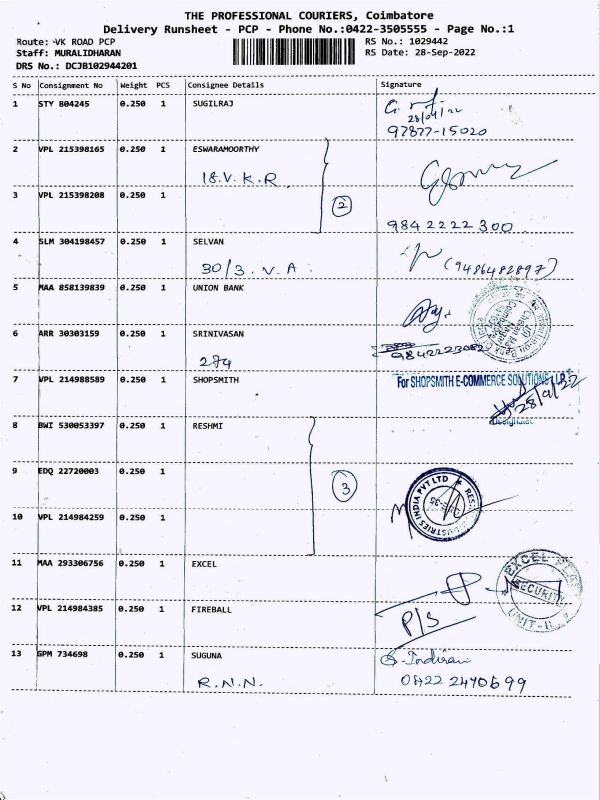 THE PROFESSIONAL COURIERS, Coimbatore
Delivery Runsheet - PCP - Phone No.:0422-3505555 - Page No.:1
Route: VK ROAD PCP RS No.: 1029442
Staff: MURALIDHARAN RS Date: 28-Sep-2022
DRS No.: DCJB102944201
S No Consignment No Weight PCS Consignee Details Signature
1 STY 804245 0.250 1 SUGILRAJ
97877-15020
2 VPL 215398165 0.250 1 ESWARAMOORTHY
18.V.K.R.
2
3 VPL 215398208 0.250 1
9842222300
4 SLM 304198457 0.250 1 SELVAN
30/3. V.A. (9486482897)
5 MAA 858139839 0.250 1 UNION BANK
6 ARR 30303159 0.250 1 SRINIVASAN
274 9842223082
7 VPL 214988589 0.250 1 SHOPSMITH For SHOPSMITH E-COMMERCE SOLUTIONS LLP
28/9/22
8 BWI 530053397 0.250 1 RESHMI
9 EDQ 22720003 0.250 1
3
INDUSTRIES INDIA PVT LTD
10 VPL 214984259 0.250 1
11 MAA 293306756 0.250 1 EXCEL
EXCEL
SECURITY
UNIT-II
12 VPL 214984385 0.250 1 FIREBALL
P/S
13 GPM 734698 0.250 1 SUGUNA S. Indirani
R.N.N. 0422 2470699